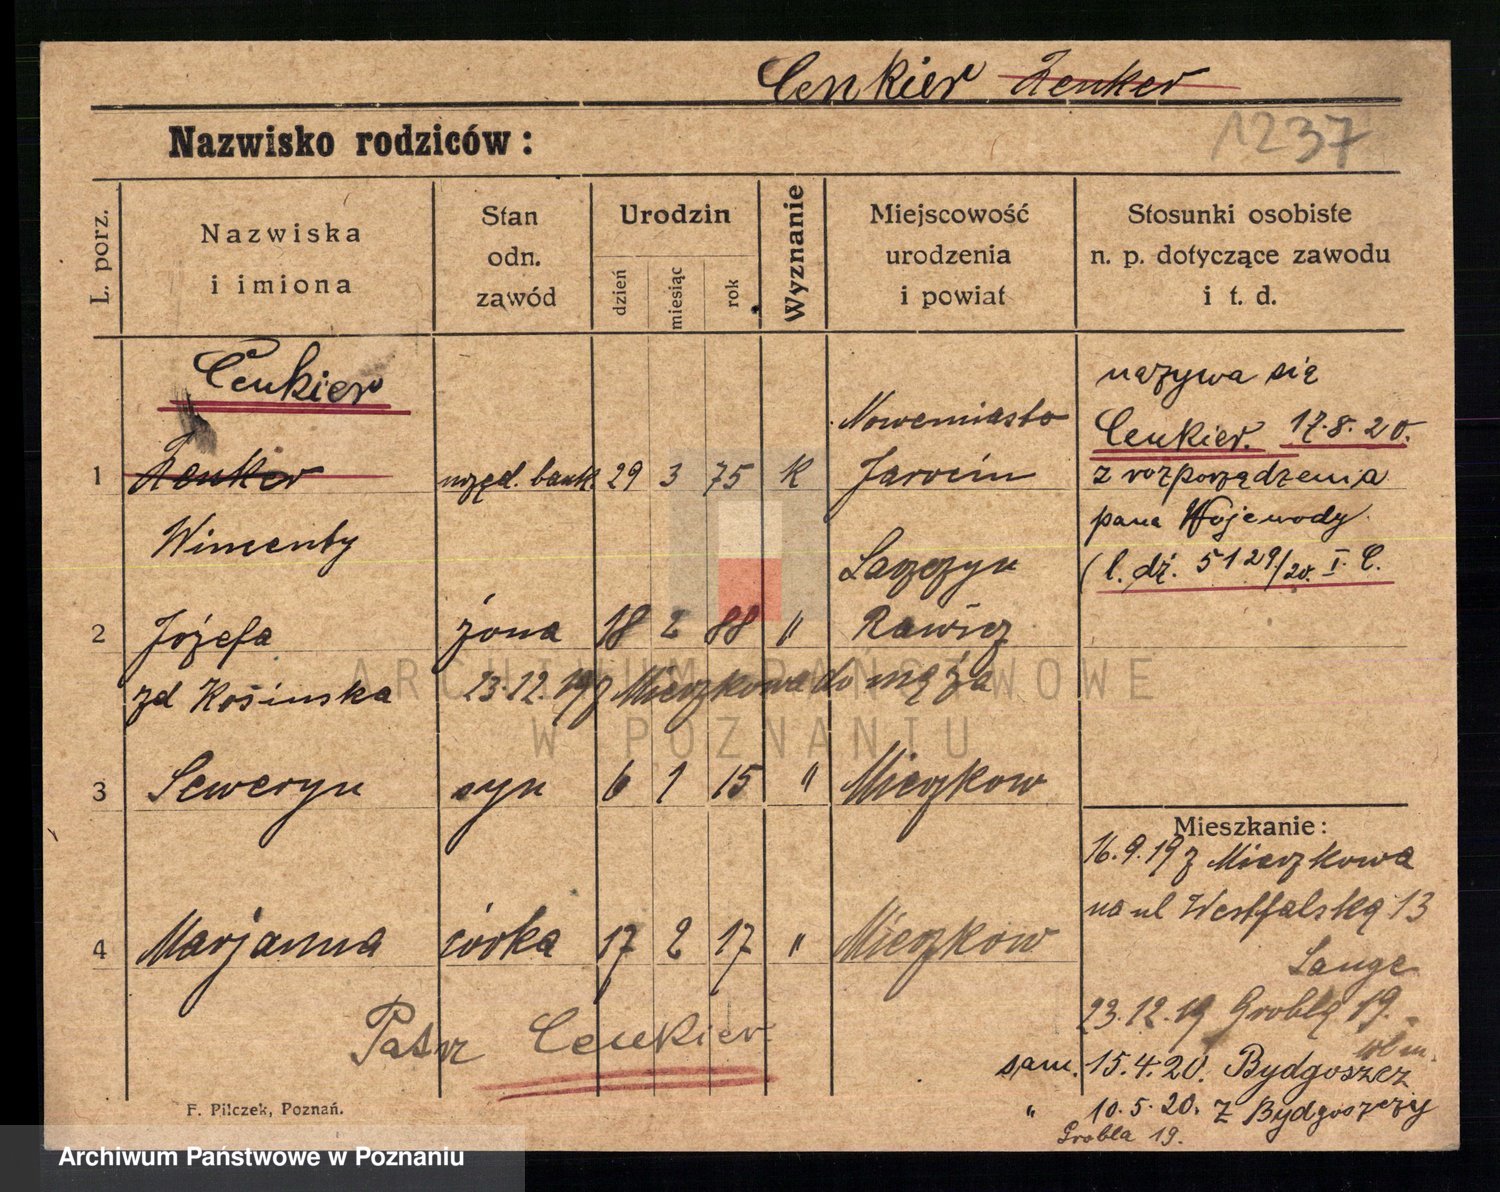 Cenkier Zenker
Nazwisko rodziców:
1237
L. porz.
Nazwiska
i imiona
Stan
odn.
zawód
Urodzin
dzień
miesiąc
rok
Wyznanie
Miejscowość
urodzenia
i powiat
Stosunki osobiste
n. p. dotyczące zawodu
i t. d.
Cenkier
Nowemiasto
1 Zenker urzęd. bank. 29 3 75 k Jarocin
Wincenty
Łaszczyn
2 Józefa żona 18 2 88 " Rawicz
zd Kosinska 23.12.19 z Mieszkowa do męża
3 Seweryn syn 6 1 15 " Mieszkow
4 Marjanna córka 17 2 17 " Mieszkow
Patrz Cenkier
nazywa się
Cenkier. 17.8.20.
z rozporządzenia
pana Wojewody
(l. dź. 5129/20. I. C.
Mieszkanie:
16.9.19 z Mieszkowa
na ul Westfalską 13
Lange
23.12.19 Grobla 19.
sam. 15.4.20. Bydgoszcz
" 10.5.20. z Bydgoszczy
Grobla 19.
F. Pilczek, Poznań.
ARCHIWUM PAŃSTWOWE
W POZNANIU
Archiwum Państwowe w Poznaniu